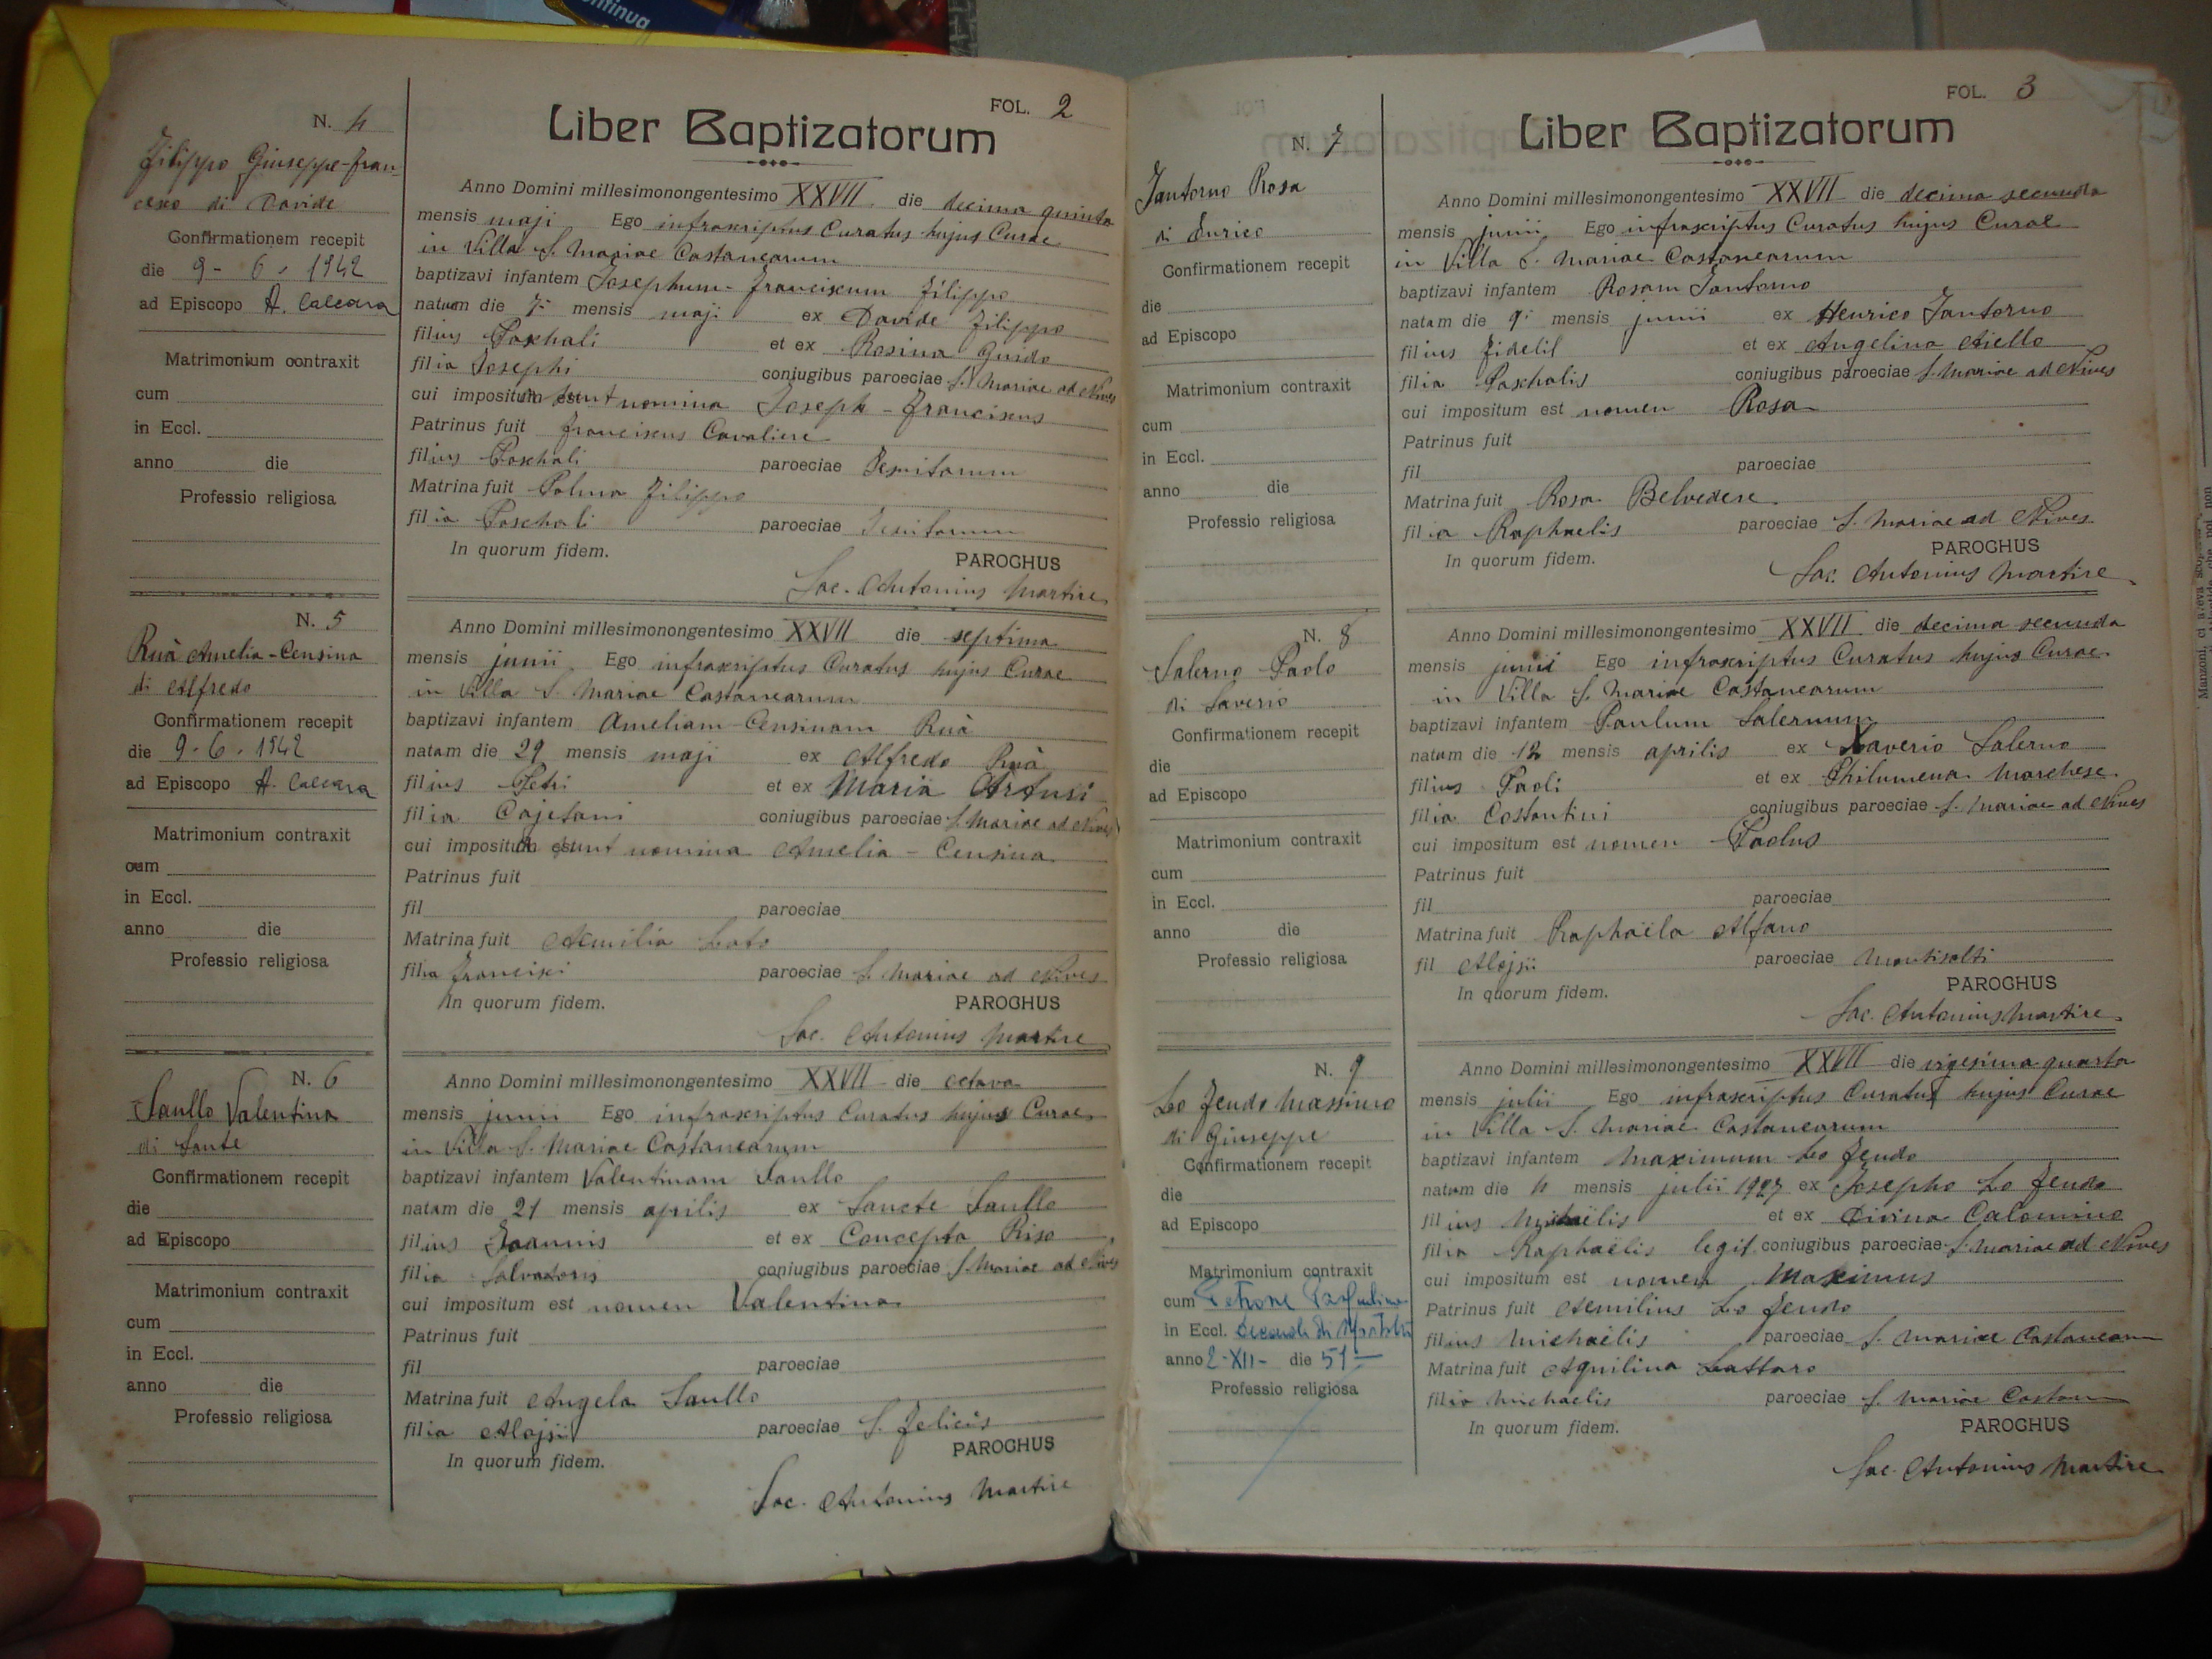 ontinua
N. 4
Filippo Giuseppe-Fran-
cesco di Davide
Confirmationem recepit
die 9 - 6 - 1942
ad Episcopo A. Calcara
Matrimonium contraxit
cum
in Eccl.
anno die
Professio religiosa
FOL. 2
Liber Baptizatorum
Anno Domini millesimonongentesimo XXVII. die decima quinta
mensis maji Ego infrascriptus Curatus hujus Curae
in Villa S. Mariae Castanearum
baptizavi infantem Josephum-Franciscum Filippo
natum die 7ª mensis maji ex Davide Filippo
filius Paschali et ex Rosina Guido
filia Josephi coniugibus paroeciae S. Mariae ad Nives
cui imposita sunt nomina Joseph - Franciscus
Patrinus fuit Franciscus Cavaliere
filius Paschali paroeciae Jesuitarum
Matrina fuit Palma Filippo
filia Paschali paroeciae Jesuitarum
In quorum fidem. PAROCHUS
Sac. Antonius Martire
N. 5
Ruà Amelia-Censina
di Alfredo
Confirmationem recepit
die 9 - 6 - 1942
ad Episcopo A. Calcara
Matrimonium contraxit
cum
in Eccl.
anno die
Professio religiosa
Anno Domini millesimonongentesimo XXVII die septima
mensis junii Ego infrascriptus Curatus hujus Curae
in Villa S. Mariae Castanearum
baptizavi infantem Ameliam-Censinam Ruà
natam die 29 mensis maji ex Alfredo Ruà
filius Petri et ex Maria Artusi
filia Cajetani coniugibus paroeciae S. Mariae ad Nives
cui imposita sunt nomina Amelia - Censina
Patrinus fuit
fil paroeciae
Matrina fuit Aemilia Lato
filia Francisci paroeciae S. Mariae ad Nives
In quorum fidem. PAROCHUS
Sac. Antonius Martire
N. 6
Saullo Valentina
di Sante
Confirmationem recepit
die
ad Episcopo
Matrimonium contraxit
cum
in Eccl.
anno die
Professio religiosa
Anno Domini millesimonongentesimo XXVII die octava
mensis junii Ego infrascriptus Curatus hujus Curae
in Villa S. Mariae Castanearum
baptizavi infantem Valentinam Saullo
natam die 21 mensis aprilis ex Sancte Saullo
filius Joannis et ex Concepta Riso
filia Salvatoris coniugibus paroeciae S. Mariae ad Nives
cui impositum est nomen Valentina
Patrinus fuit
fil paroeciae
Matrina fuit Angela Saullo
filia Alojsii paroeciae S. Felicis
In quorum fidem. PAROCHUS
Sac. Antonius Martire
N. 7
Fantorno Rosa
di Enrico
Confirmationem recepit
die
ad Episcopo
Matrimonium contraxit
cum
in Eccl.
anno die
Professio religiosa
FOL. 3
Liber Baptizatorum
Anno Domini millesimonongentesimo XXVII die decima secunda
mensis junii Ego infrascriptus Curatus hujus Curae
in Villa S. Mariae Castanearum
baptizavi infantem Rosam Fantorno
natam die 9ª mensis junii ex Henrico Fantorno
filius Fidelil et ex Angelina Aiello
filia Paschalis coniugibus paroeciae S. Mariae ad Nives
cui impositum est nomen Rosa
Patrinus fuit
fil paroeciae
Matrina fuit Rosa Belvedere
filia Raphaelis paroeciae S. Mariae ad Nives
In quorum fidem. PAROCHUS
Sac. Antonius Martire
N. 8
Salerno Paolo
di Saverio
Confirmationem recepit
die
ad Episcopo
Matrimonium contraxit
cum
in Eccl.
anno die
Professio religiosa
Anno Domini millesimonongentesimo XXVII die decima secunda
mensis junii Ego infrascriptus Curatus hujus Curae
in Villa S. Mariae Castanearum
baptizavi infantem Paulum Salernum
natum die 12 mensis aprilis ex Xaverio Salerno
filius Paoli et ex Philumena Marchese
filia Costantini coniugibus paroeciae S. Mariae ad Nives
cui impositum est nomen Paolus
Patrinus fuit
fil paroeciae
Matrina fuit Raphaëla Alfano
fil Alojsii paroeciae Montisalti
In quorum fidem. PAROCHUS
Sac. Antonius Martire
N. 9
Lo Feudo Massimo
di Giuseppe
Confirmationem recepit
die
ad Episcopo
Matrimonium contraxit
cum Petrone
in Eccl. di
anno 2-XII- die 51
Professio religiosa
Anno Domini millesimonongentesimo XXVII die vigesima quarta
mensis julii Ego infrascriptus Curatus hujus Curae
in Villa S. Mariae Castanearum
baptizavi infantem Maximum Lo Feudo
natum die 4 mensis julii 1927 ex Josepho Lo Feudo
filius Michaëlis et ex Divina Calomino
filia Raphaëlis legit. coniugibus paroeciae S. Mariae ad Nives
cui impositum est nomen Maximus
Patrinus fuit Aemilius Lo Feudo
filius Michaëlis paroeciae S. Mariae Castanearum
Matrina fuit Aquilina Lattaro
filia Michaelis paroeciae S. Mariae Castan
In quorum fidem. PAROCHUS
Sac. Antonius Martire